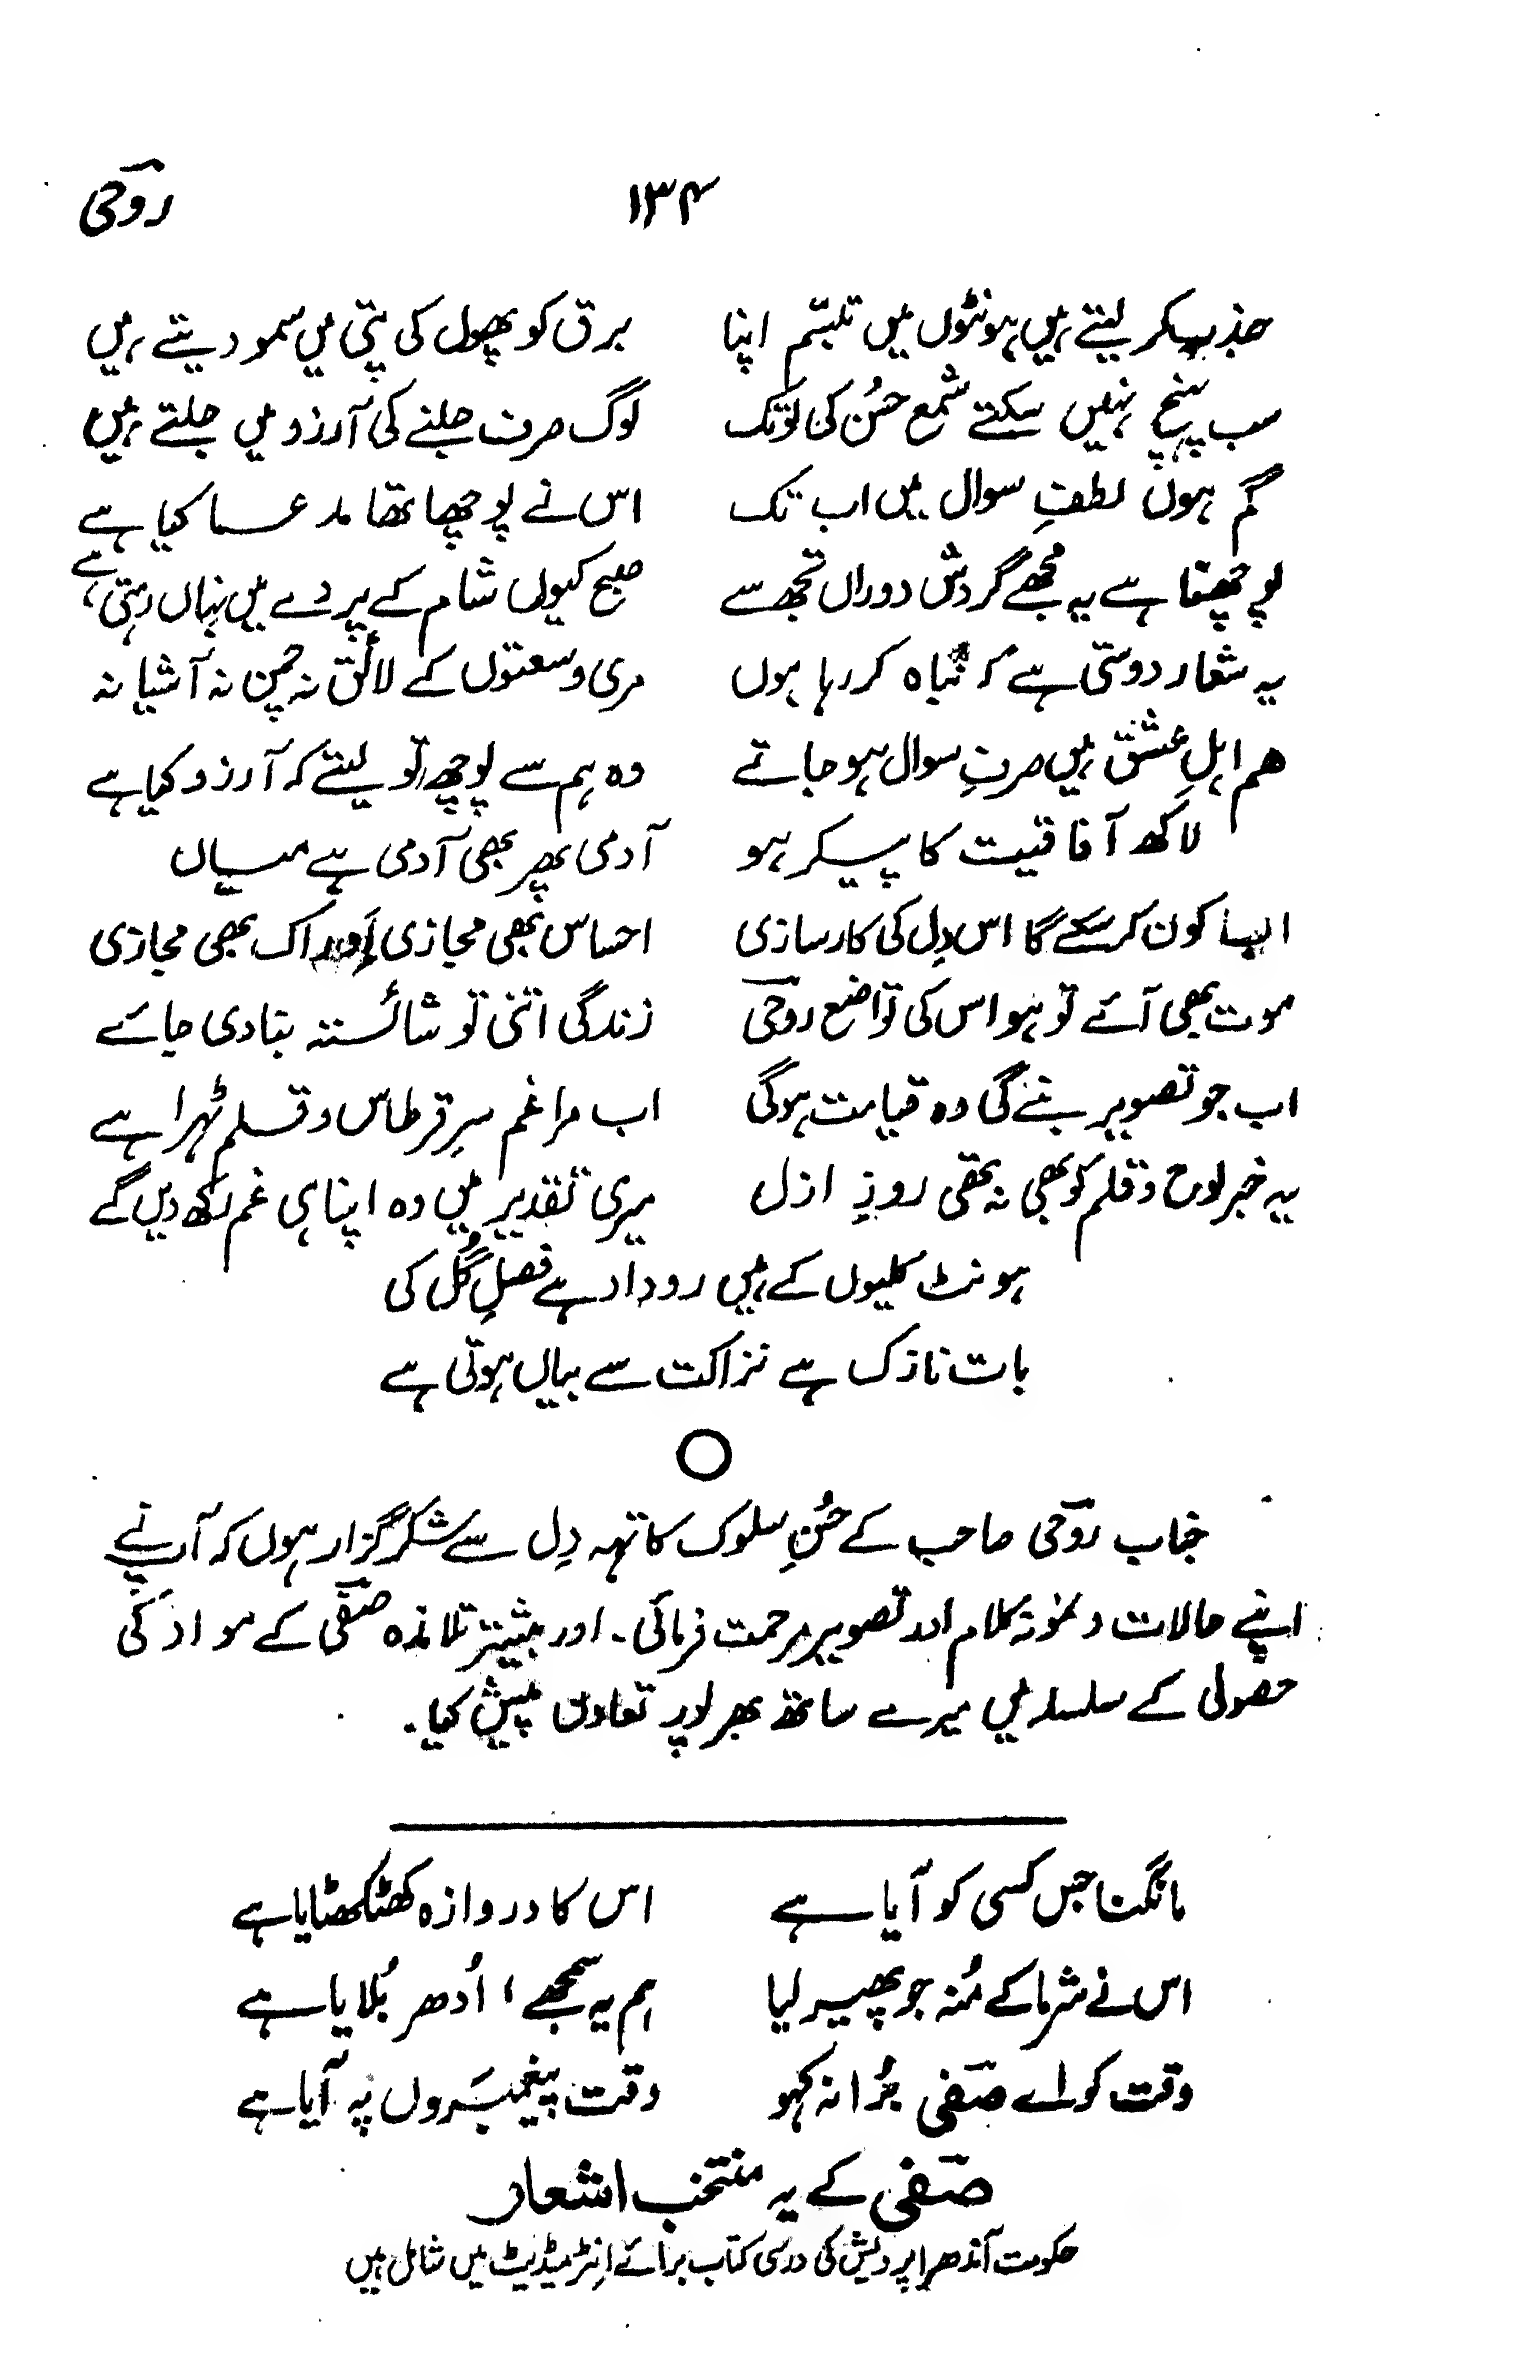 روحی ۱۳۴
جذب کر لیتے ہیں ہونٹوں میں تبسّم اپنا برق کو پھول کی پتی میں سمو دیتے ہیں
سب پہنچ نہیں سکتے شمع حسُن کی لَو تک لوگ صرف جلنے کی آرزو میں جلتے ہیں
گم ہوں لطفِ سوال میں اب تک اس نے پوچھا تھا مدعا کیا ہے
پوچھتا ہے یہ مجھے گردش دوراں تجھ سے صبح کیوں شام کے پردے میں نہاں رہتی ہے
یہ شعار دوستی ہے کہ نباہ کر رہا ہوں مری وسعتوں کے لائق نہ چمن نہ آشیانہ
ہم اہلِ عشق ہیں صرفِ سوال ہو جاتے وہ ہم سے پوچھ تو لیتے کہ آرزو کیا ہے
لاکھ آفاقیت کا پیکر ہو آدمی پھر بھی آدمی ہے میاں
ایسا کون کر سکے گا اس دِل کی کارسازی احساس بھی مجازی اِدراک بھی مجازی
موت بھی آئے تو ہو اس کی تواضع روحی زندگی اتنی تو شائستہ بنا دی جائے
اب جو تصویر بنے گی وہ قیامت ہوگی اب مرا غم سرِ قرطاس و قلم ٹہرا ہے
یہ خبر لوح و قلم کو بھی نہ تھی روزِ ازل میری تقدیر میں وہ اپنا ہی غم رکھ دیں گے
ہونٹ کلیوں کے ہیں روداد ہے فصلِ گُل کی
بات نازک ہے نزاکت سے بیاں ہوتی ہے
جناب روحی صاحب کے حسُنِ سلوک کا تہہ دِل سے شکر گزار ہوں کہ آپ نے
اپنے حالات و نمونہ کلام اور تصویر مرحمت فرمائی۔ اور بیشتر تلامذہ صفی کے مواد کی
حصولی کے سلسلہ میں میرے ساتھ بھرپور تعاون پیش کیا۔
مانگنا جس کسی کو آیا ہے اس کا دروازہ کھٹکھٹایا ہے
اس نے شرما کے مُنہ جو پھیر لیا ہم یہ سمجھے ، اُدھر بُلایا ہے
وقت کو اے صفی بُرا نہ کہو وقت پیغمبَروں پہ آیا ہے
صفی کے یہ منتخب اشعار
حکومت آندھرا پردیش کی درسی کتاب برائے اِنٹرمیڈیٹ میں شامل ہیں